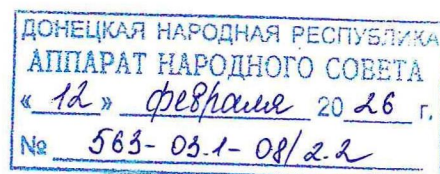 ДОНЕЦКАЯ НАРОДНАЯ РЕСПУБЛИКА
АППАРАТ НАРОДНОГО СОВЕТА
« 12 » февраля 20 26 г.
№ 563-03.1-08/2.2